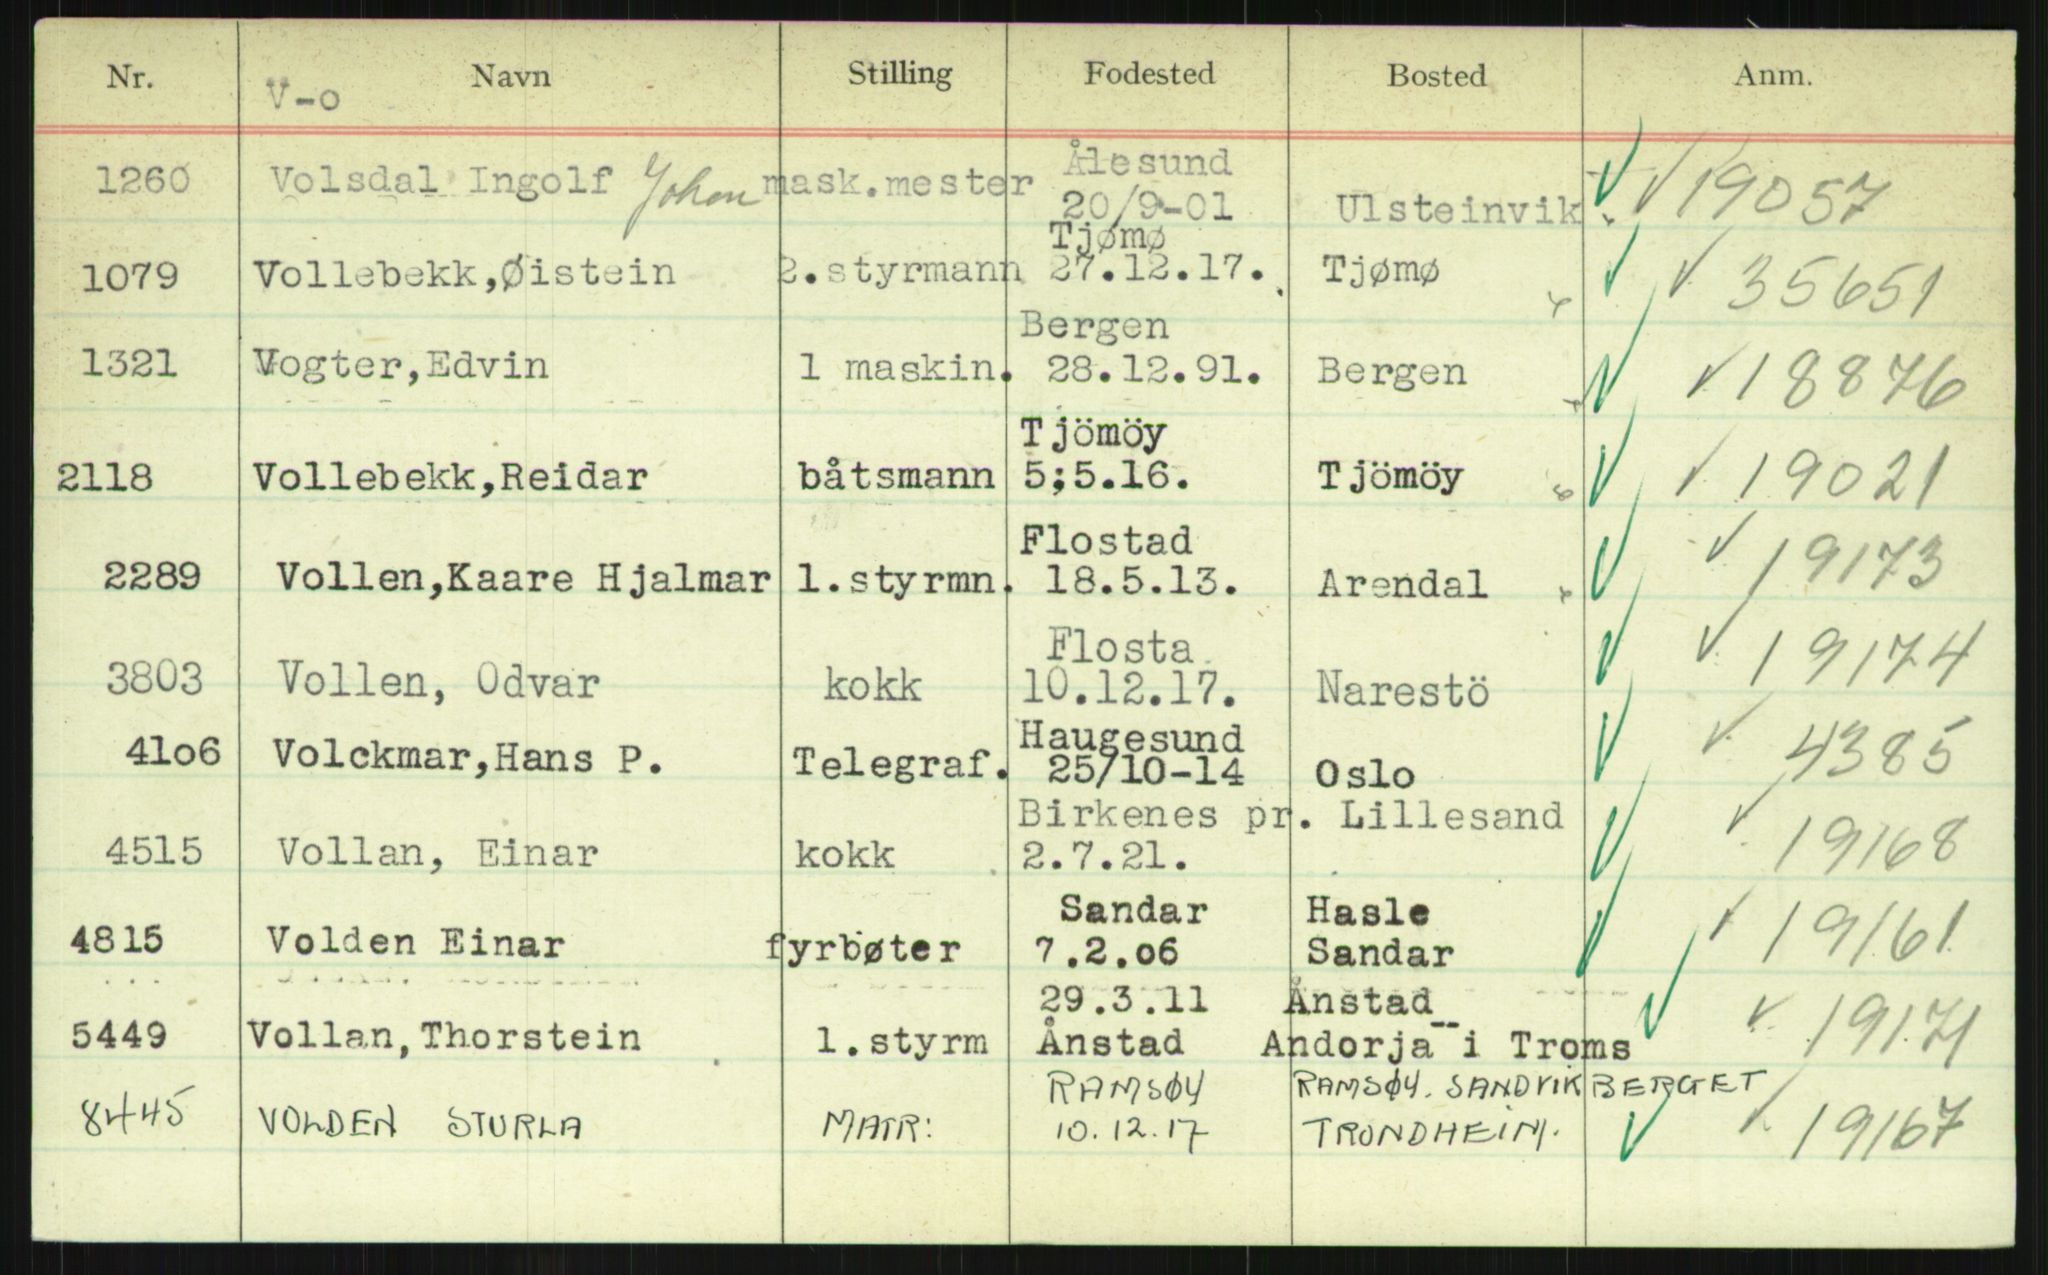 Nr. Navn Stilling Fodested Bosted Anm.
V-o
1260 Volsdal Ingolf Johan mask.mester Ålesund 20/9-01 Ulsteinvik 19057
1079 Vollebekk,Øistein 2.styrmann Tjømø 27.12.17. Tjømø 35651
1321 Vogter,Edvin 1 maskin. Bergen 28.12.91. Bergen 18876
2118 Vollebekk,Reidar båtsmann Tjömöy 5;5.16. Tjömöy 19021
2289 Vollen,Kaare Hjalmar 1.styrmn. Flostad 18.5.13. Arendal 19173
3803 Vollen, Odvar kokk Flosta 10.12.17. Narestö 19174
41o6 Volckmar,Hans P. Telegraf. Haugesund 25/10-14 Oslo 4385
4515 Vollan, Einar kokk Birkenes pr. Lillesand 2.7.21. 19168
4815 Volden Einar fyrbøter Sandar 7.2.o6 Hasle Sandar 19161
5449 Vollan,Thorstein 1.styrm 29.3.11 Ånstad Ånstad Andorja i Troms 19171
8445 VOLDEN STURLA MATR: RAMSØY 10.12.17 RAMSØY. SANDVIK BERGET TRONDHEIM. 19167